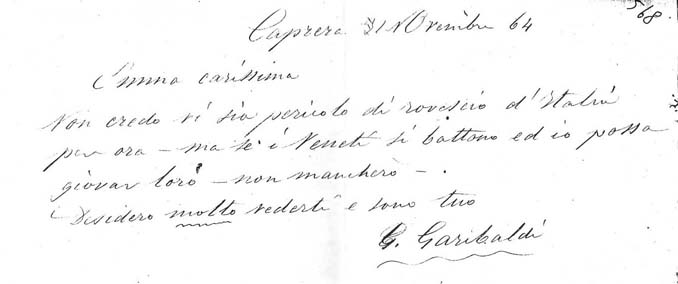 568.
Caprera 21 Novembre 64
Emma carissima
Non credo vi sia pericolo di rovescio d'Italia
per ora – ma se i Veneti si battono ed io possa
giovar loro – non mancherò – .
Desidero molto vederti e sono tuo
G. Garibaldi